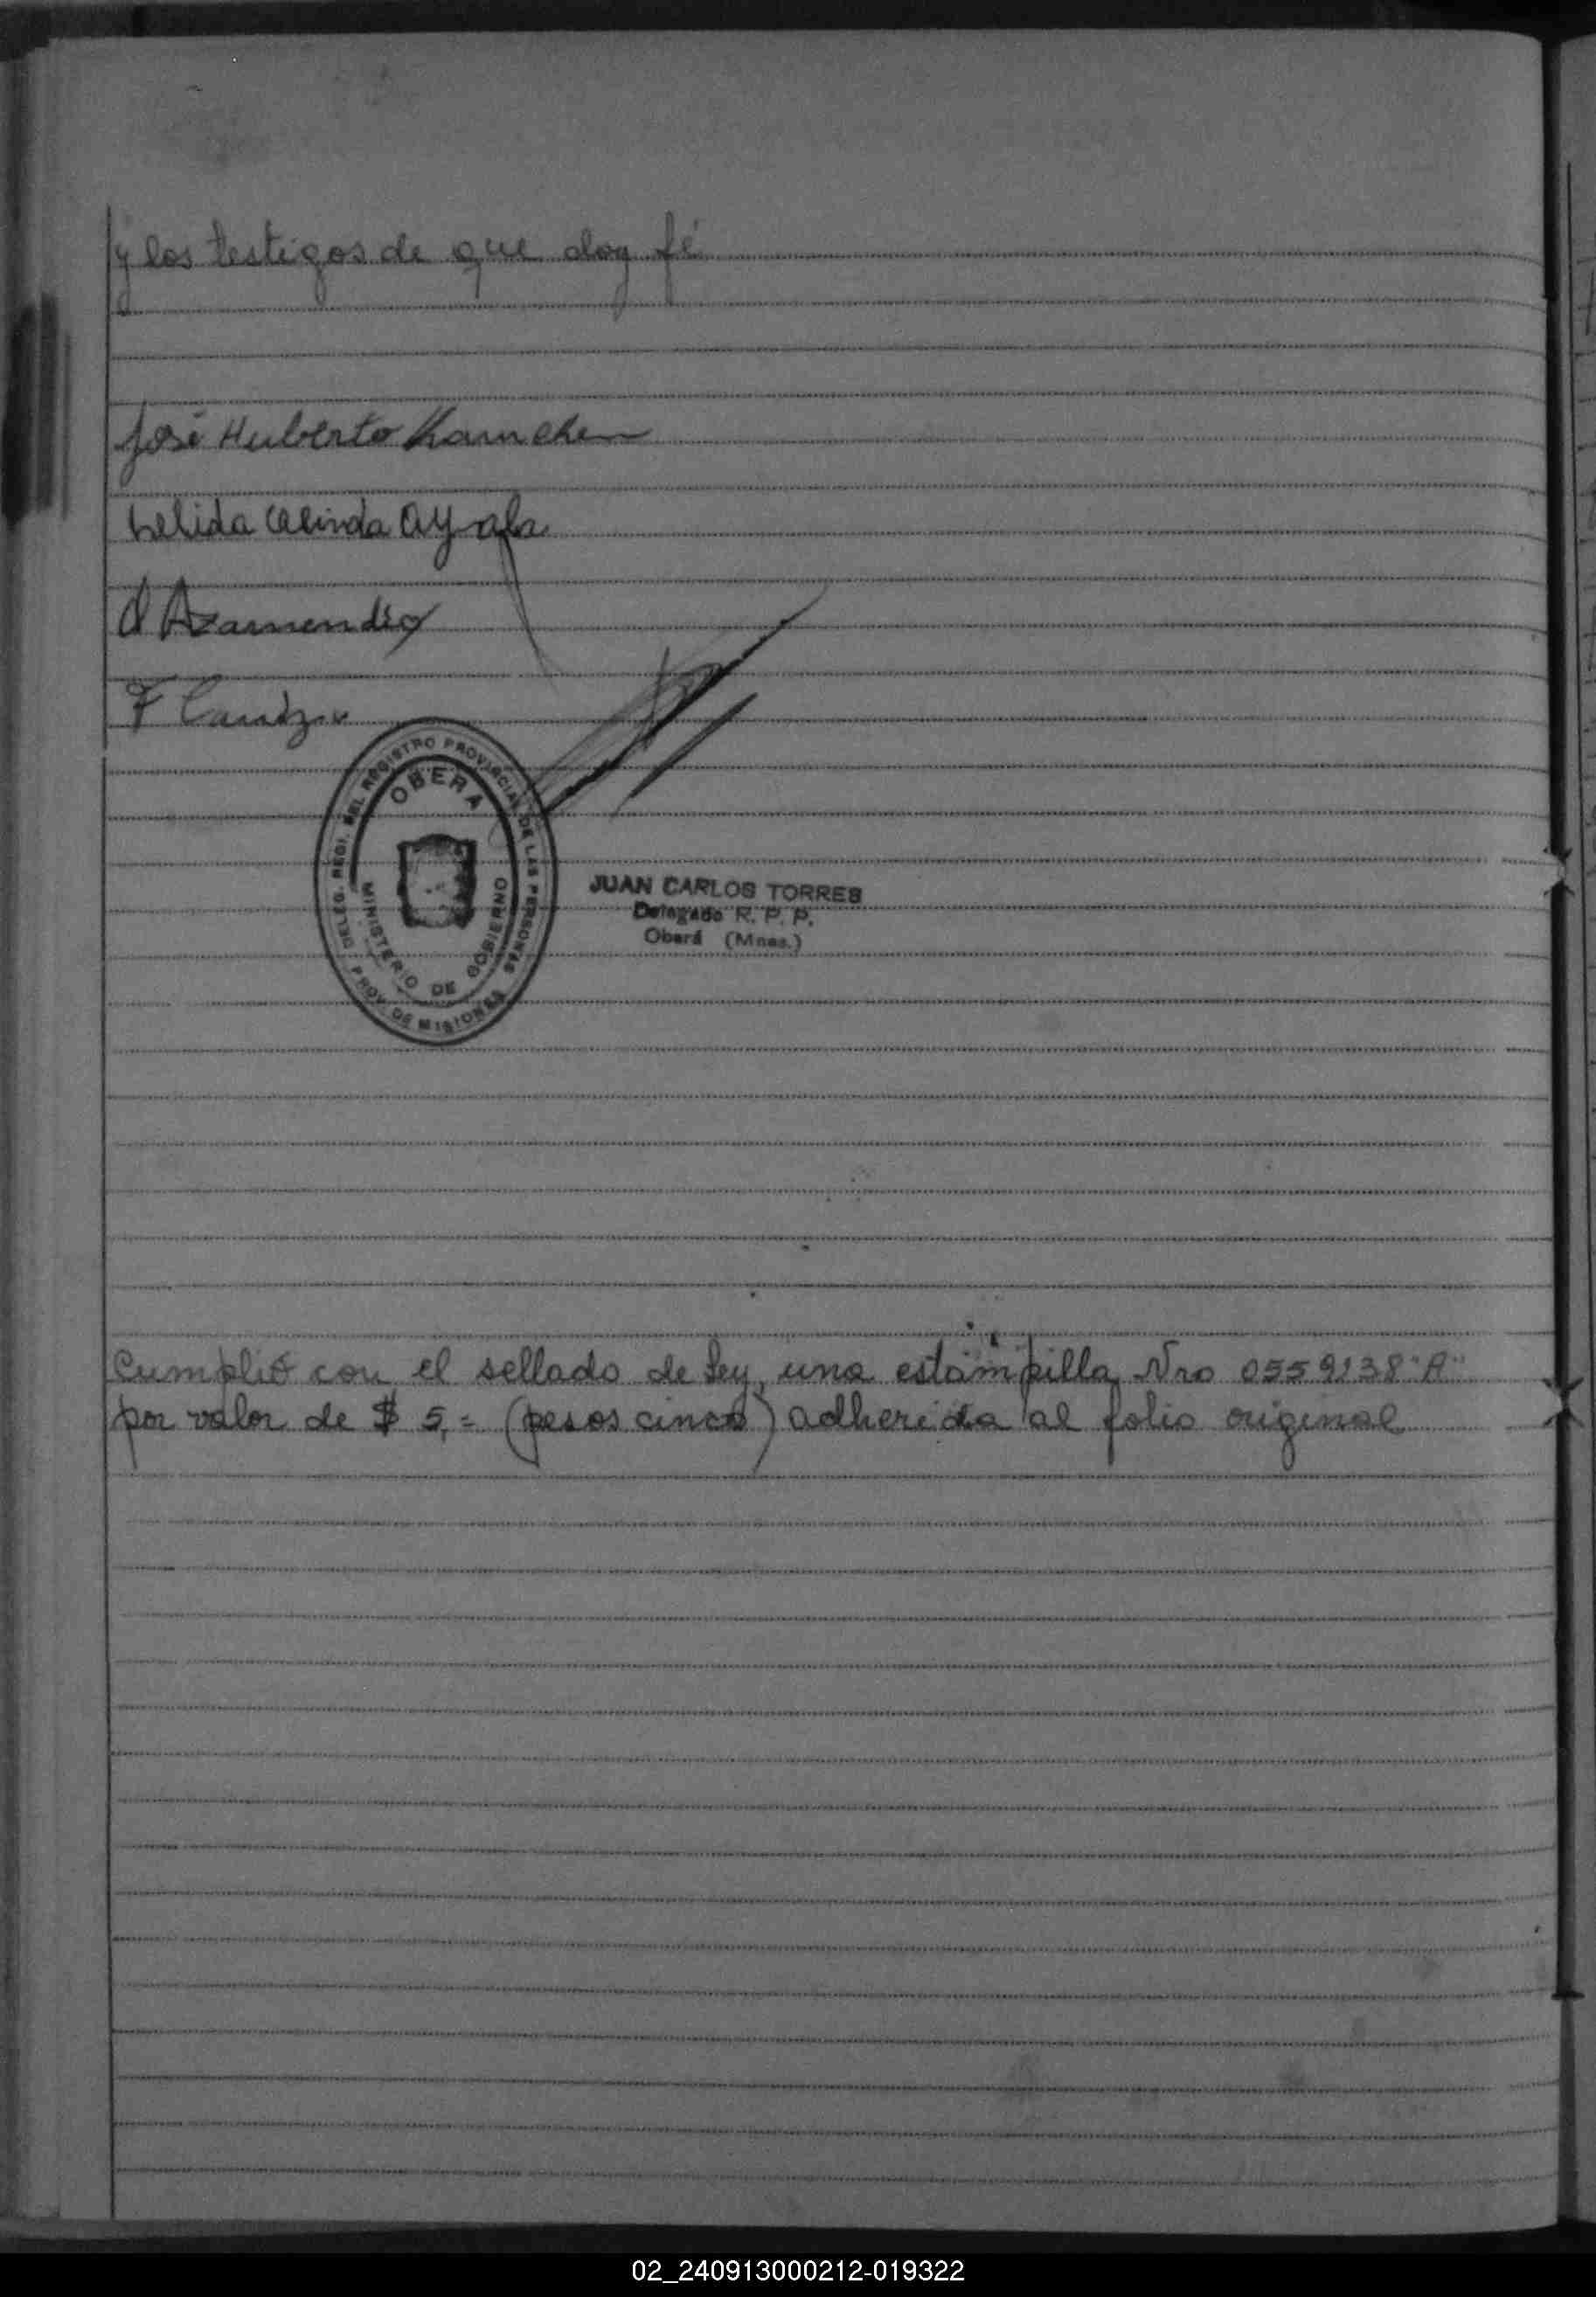 y los testigos de que doy fé
José Huberto
Ayala
F
DELEG. REGI. DEL REGISTRO PROVINCIAL DE LAS PERSONAS
OBERA
MINISTERIO DE GOBIERNO
PROV. DE MISIONES
JUAN CARLOS TORRES
Delegado R. P. P.
Oberá (Mnes.)
Cumplió con el sellado de Ley, una estampilla Nro 0559138 "A"
por valor de $ 5,= (pesos cinco) adherida al folio original
02_240913000212-019322